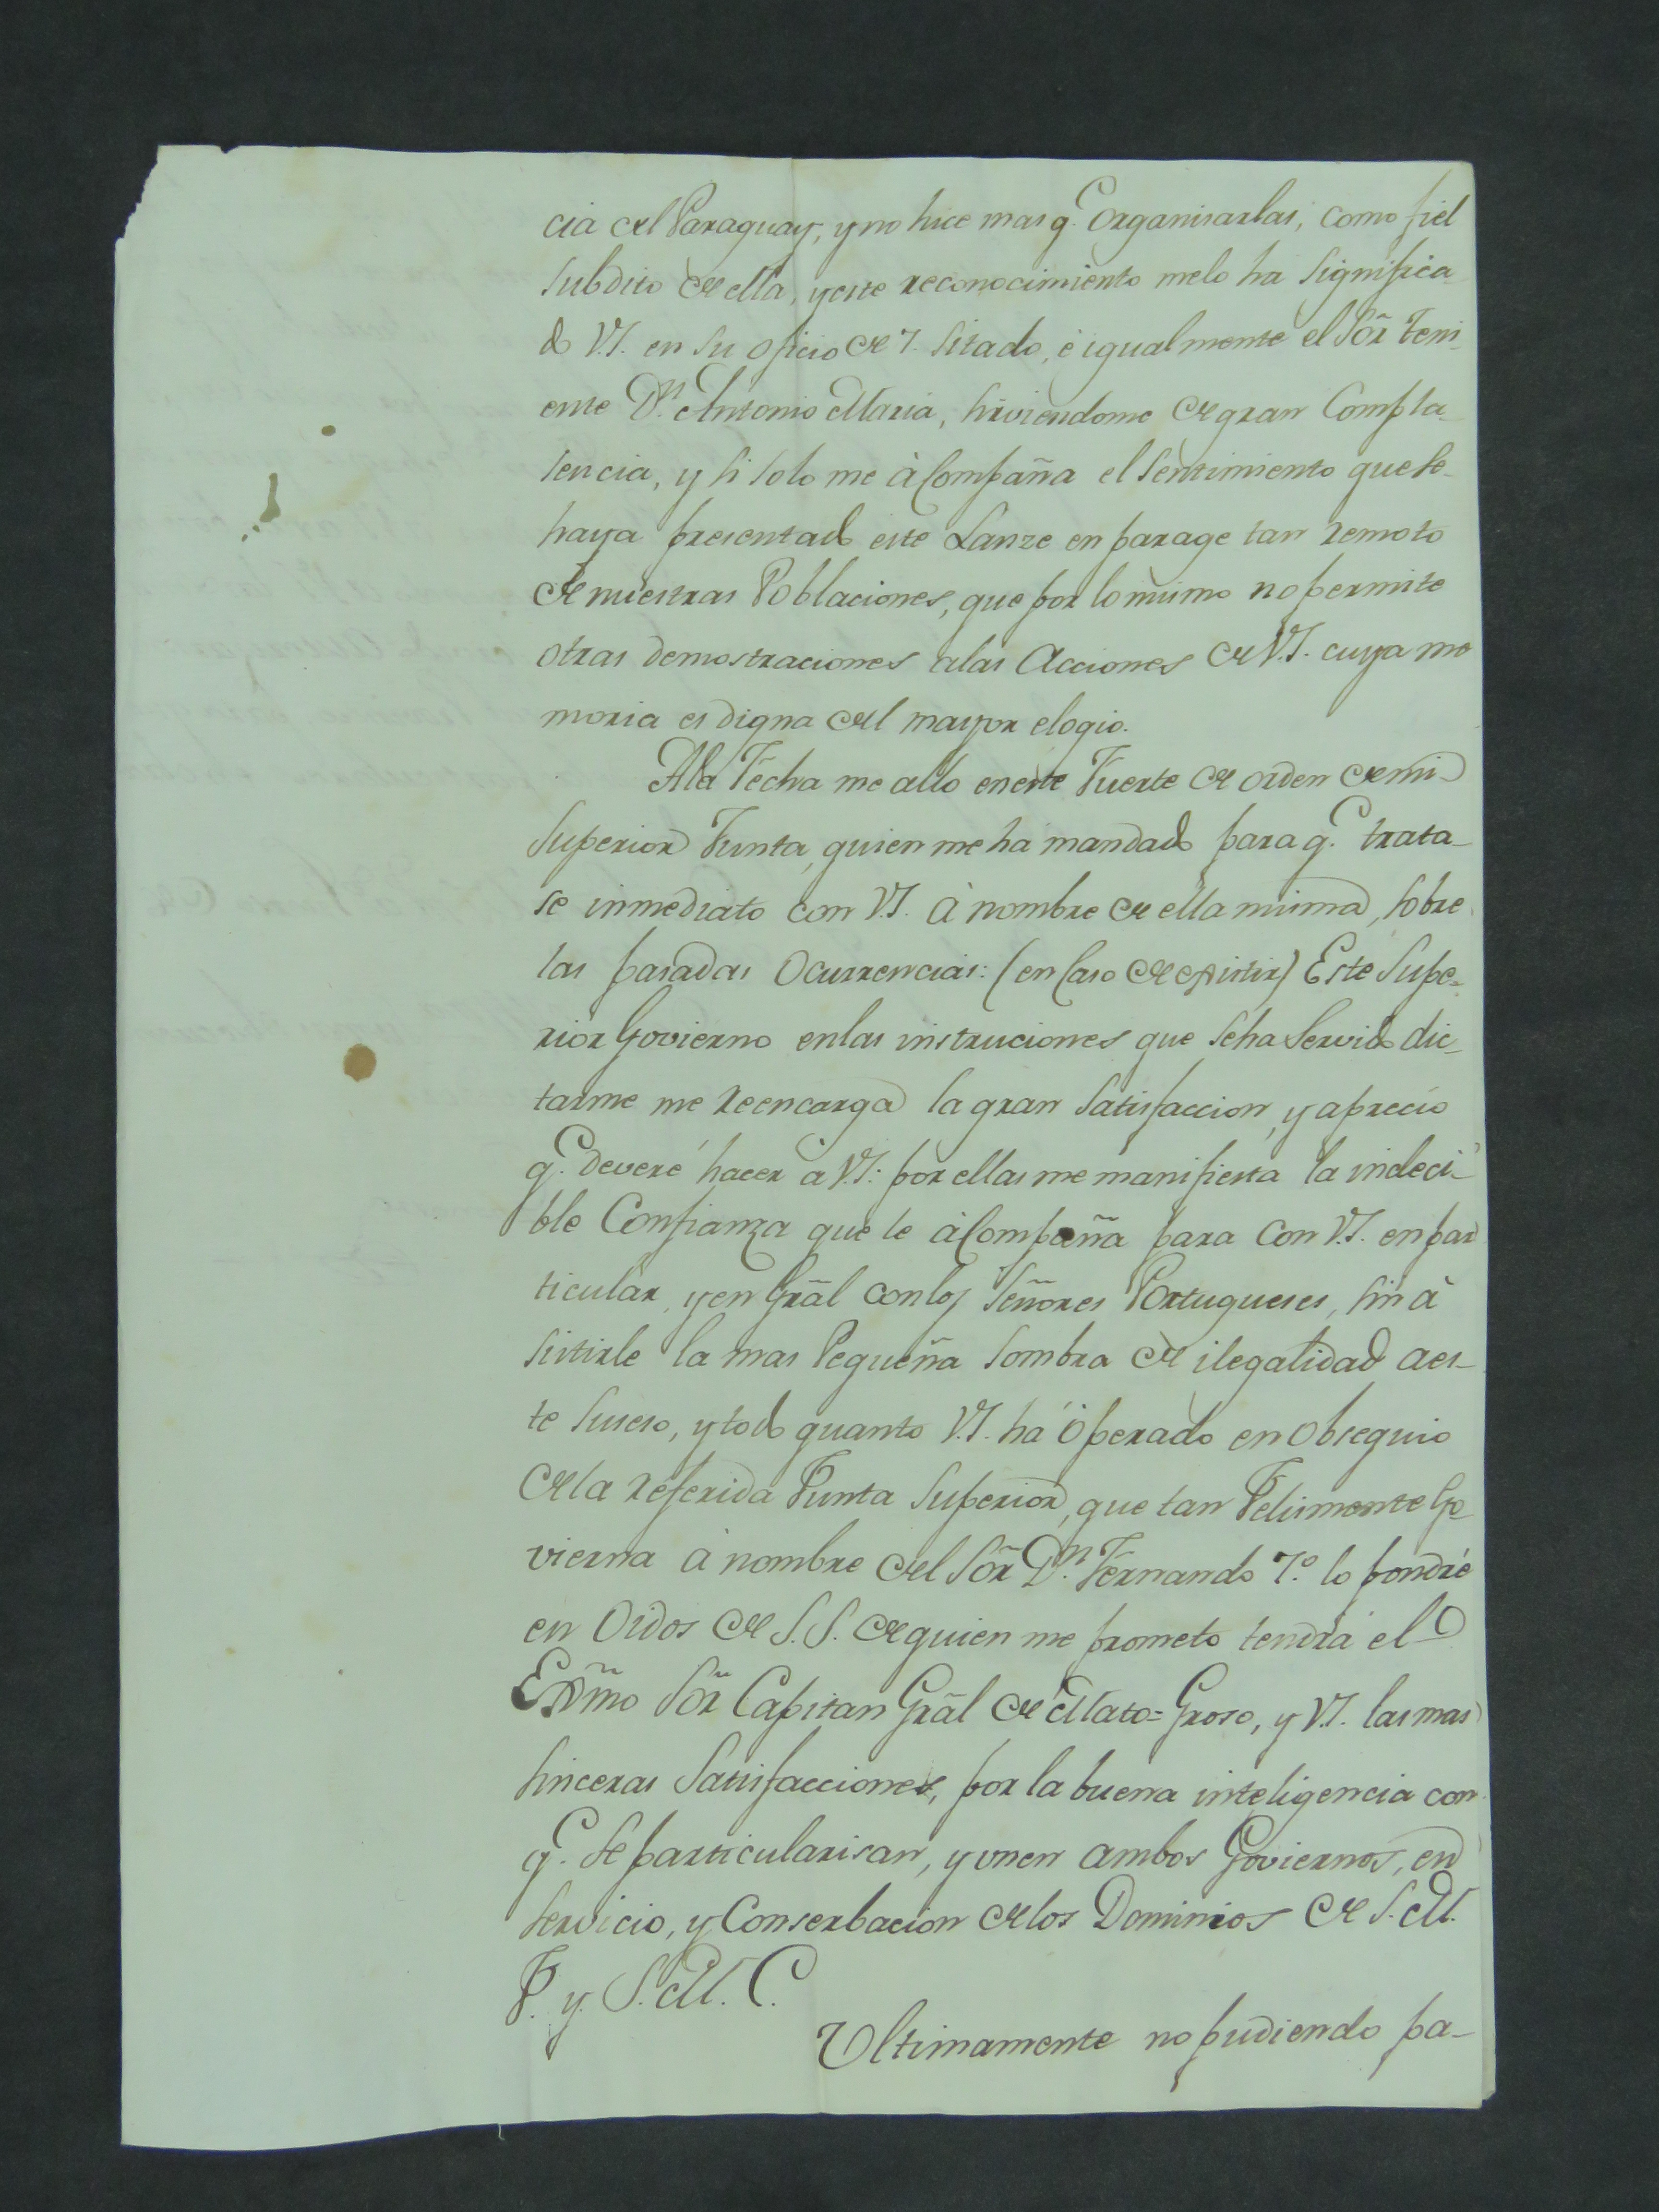 cia del Paraguay, y no hice mas q.e organisarlas, como fiel
subdito de ella, y este reconocimiento melo ha significa
do V.S. en su oficio de 7. sitado, è igualmente el Sõr Teni
ente D.n Antonio Maria, sirviendome de gran Compla-
sencia, y si solo me àCompaña el sentimiento que se-
haya presentado este Lanze en parage tan remoto
de nuestras Poblaciones, que por lo mismo no permite
otras demostraciones alas Acciones de V.S. cuya me
moria es digna del mayor elogio.
Ala Fecha me allo en este Fuerte de orden de mi
Superior Junta, quien me ha mandado para q.e trata-
se inmediato con V.S. à nombre de ella misma, sobre
las pasadas Ocurrencias: (en Caso de existir) Este Supe-
rior Govierno enlas instruciones que seha Servido dic-
tarme me reencarga la gran Satisfaccion, y aprecio
q.e deveré hacer a V.S: por ellas me manifiesta la indeci-
ble Confianza que le àCompaña para Con V.S. en par
ticular, y en Grãl con los Señores Portugueses, sin à
sistirle la mas Pequeña Sombra de ilegalidad aes-
te Suseso, y todo quanto V.S. há òperado en Obsequio
dela referida Junta Superior, que tan Felismente Go
vierna à nombre del Sõr D.n Fernando 7.º lo pondré
en Oidos de S.S. de quien me prometo tendrá el
Exm̃o Sõr Capitan Grãl de Mato=Groso, y V.S. las mas
sinceras Satisfacciones, por la buena inteligencia con
q.e se particularisan, y unen ambos Goviernos, en
servicio, y Conserbacion delos Dominios de S.M.
F. y S.M.C.
Ultimamente no pudiendo pa-